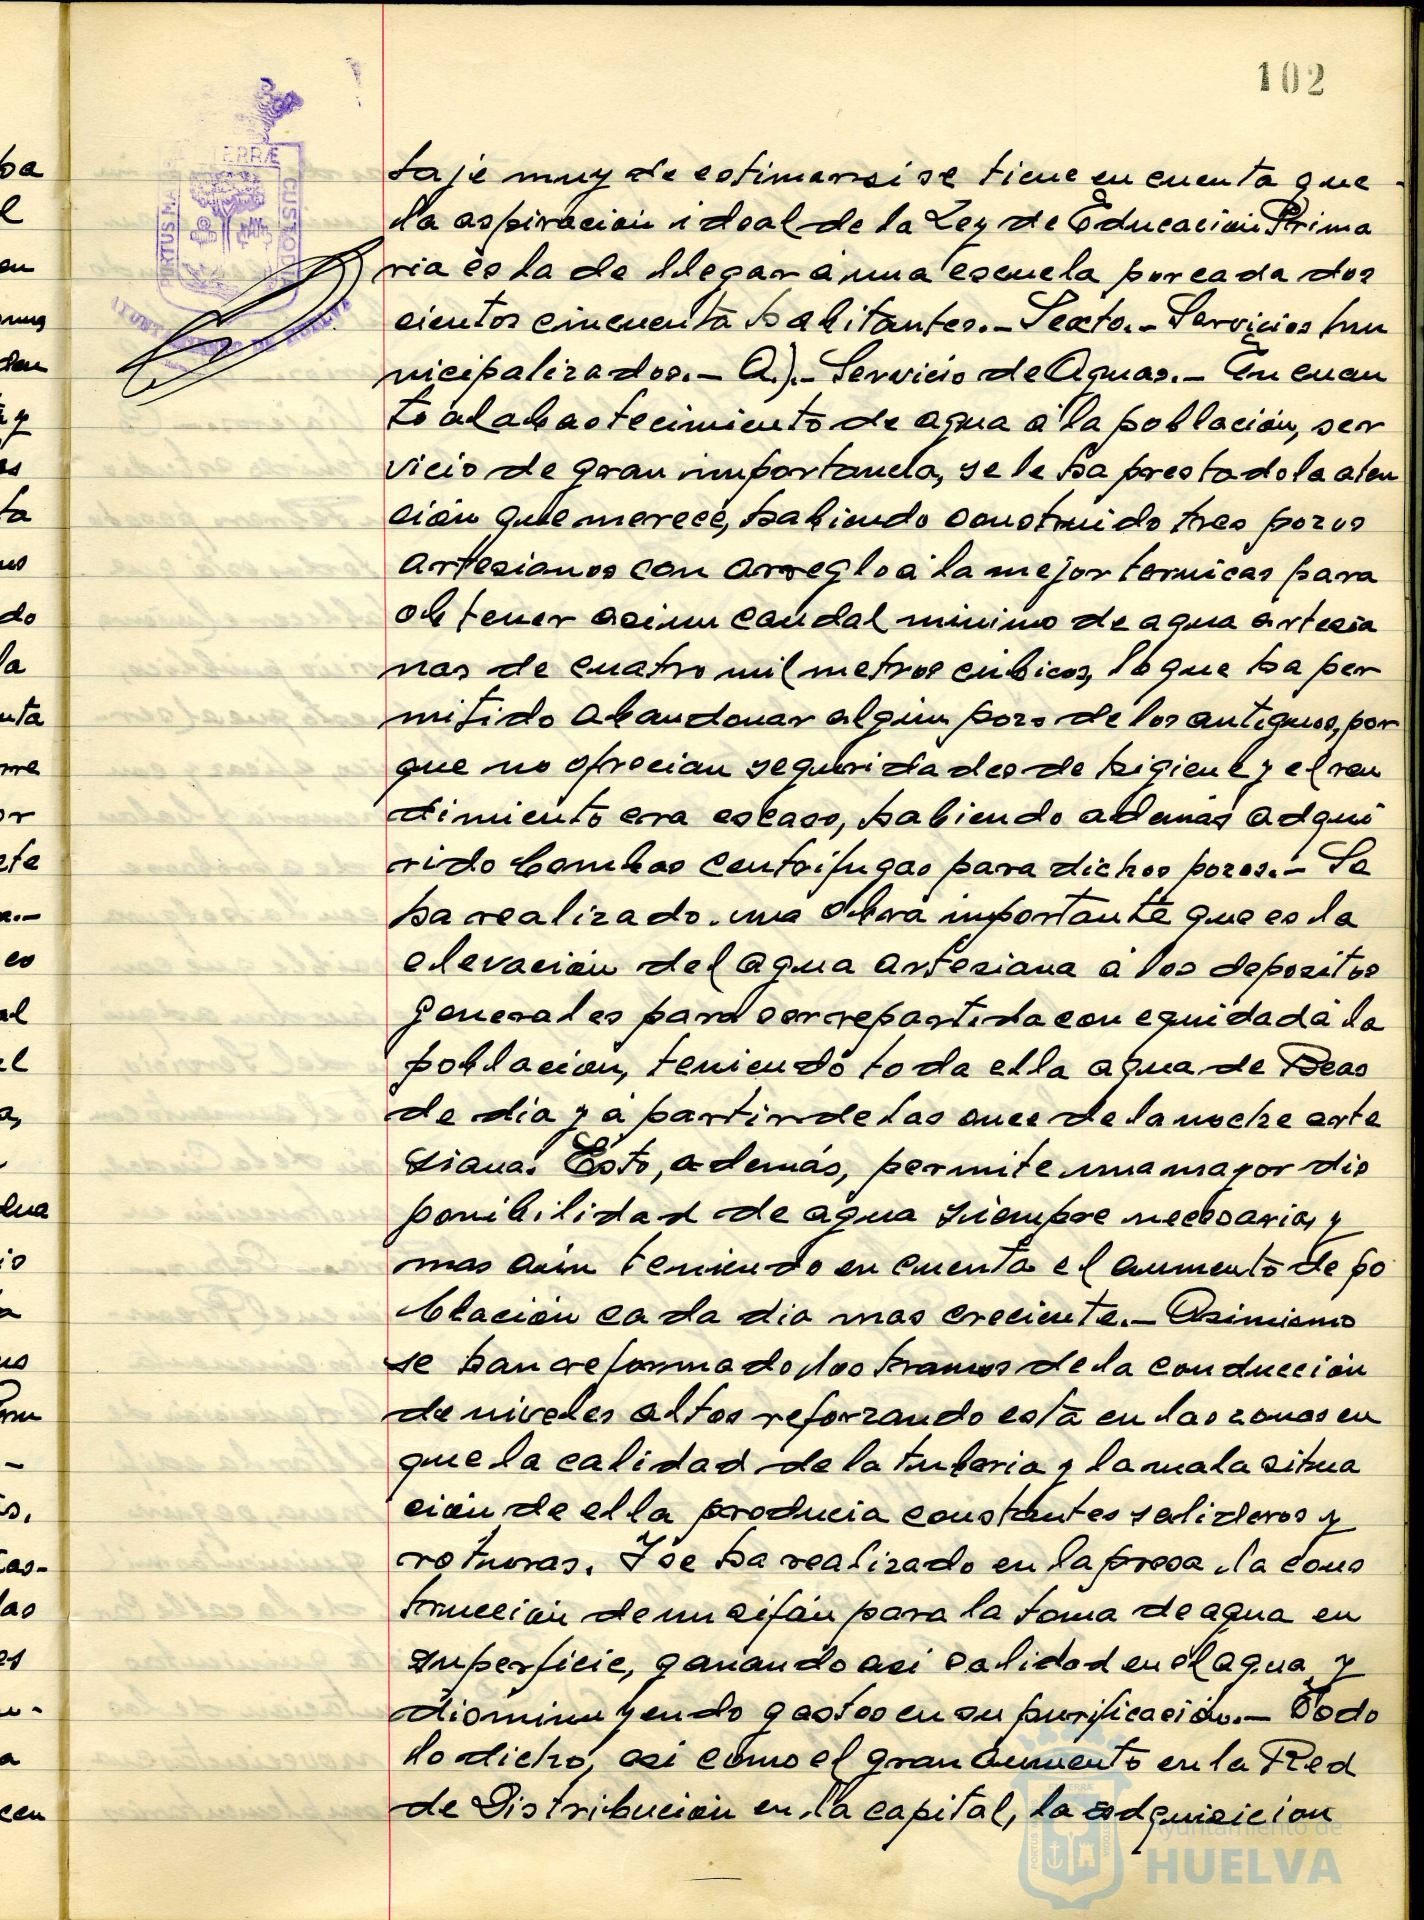 102
taje muy de estimarsi se tiene en cuenta que
la aspiración ideal de la Ley de Educación Prima
ria és la de llegar á una escuela por cada dos
cientos cincuenta habitantes.- Sexto.- Servicios mu
nicipalizados.- A).- Servicio de Aguas.- En cuan
to al abastecimiento de agua á la población, ser
vicio de gran importancia, se le ha prestado la aten
ción que merece, habiendo construido tres pozos
artesianos con arreglo á la mejor ternicas para
obtener asi un caudal minimo de agua artesia
nas de cuatro mil metros cúbicos, lo que ha per
mitido abandonar algún pozo de los antiguos, por
que no ofrecian seguridades de higiene y el ren
dimiento era escaso, habiendo además adqui
rido bombas centrifugas para dichos pozos.- Se
ha realizado una obra importante que es la
elevación del agua artesiana á los depositos
generales para ser repartida con equidad á la
población, teniendo toda ella agua de Beas
de dia y á partir de las once de la noche arte
siana. Esto, además, permite una mayor dis
ponibilidad de agua siempre necesaria, y
mas aún teniendo en cuenta el aumento de po
blación cada dia mas creciente.- Asimismo
se han reformado los tramos de la conducción
de niveles altos reforzando esta en las zonas en
que la calidad de la tuberia y la mala situa
ción de ella producia constantes salideros y
roturas. Y se ha realizado en la presa la cons
trucción de un sifón para la toma de agua en
superficie, ganando asi calidad en el agua y
disminuyendo gastos en su purificación.- Todo
lo dicho, asi como el gran aumento en la Red
de Distribución en la capital, la adquisicion
PORTUS MARIS ET TERRÆ CUSTODIA
AYUNTAMIENTO DE HUELVA
Ayuntamiento de
HUELVA